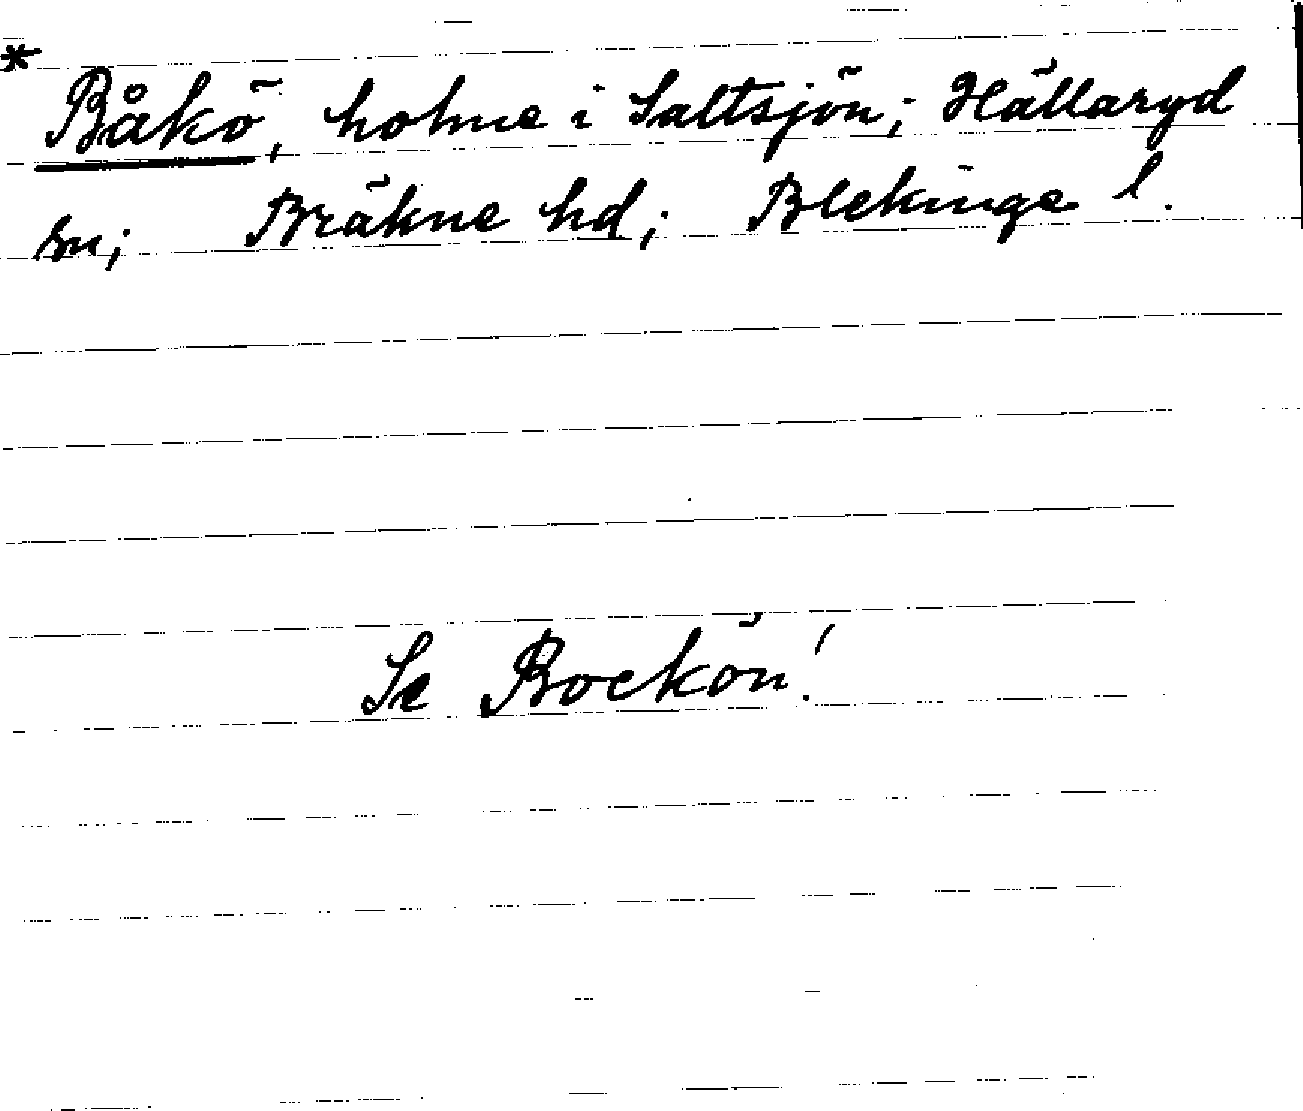 * Båkö, holme i Saltsjön; Hällaryd
sn; Bräkne hd; Blekinge l.
Se Bockön!